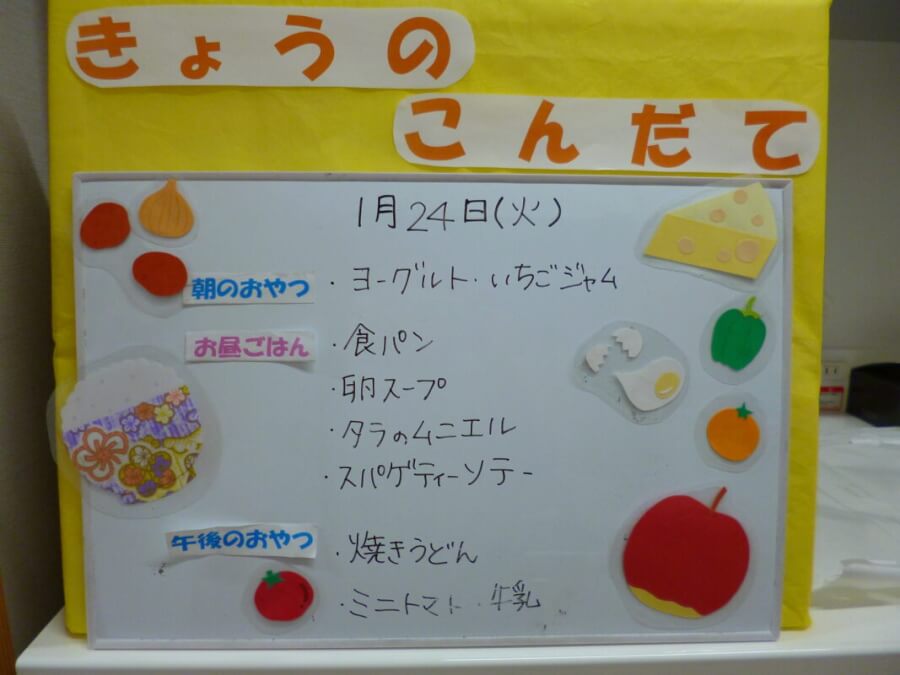 きょうの
こんだて
1月24日(火)
朝のおやつ ・ヨーグルト・いちごジャム
お昼ごはん ・食パン
・卵スープ
・タラのムニエル
・スパゲティーソテー
午後のおやつ ・焼きうどん
・ミニトマト・牛乳